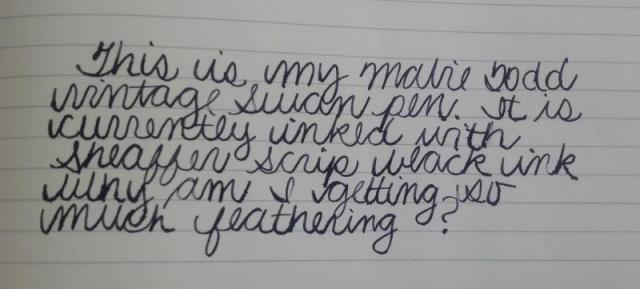 This is my mabie todd
vintage swan pen. It is
currently inked with
sheaffer scrip black ink
why am I getting so
much feathering ?